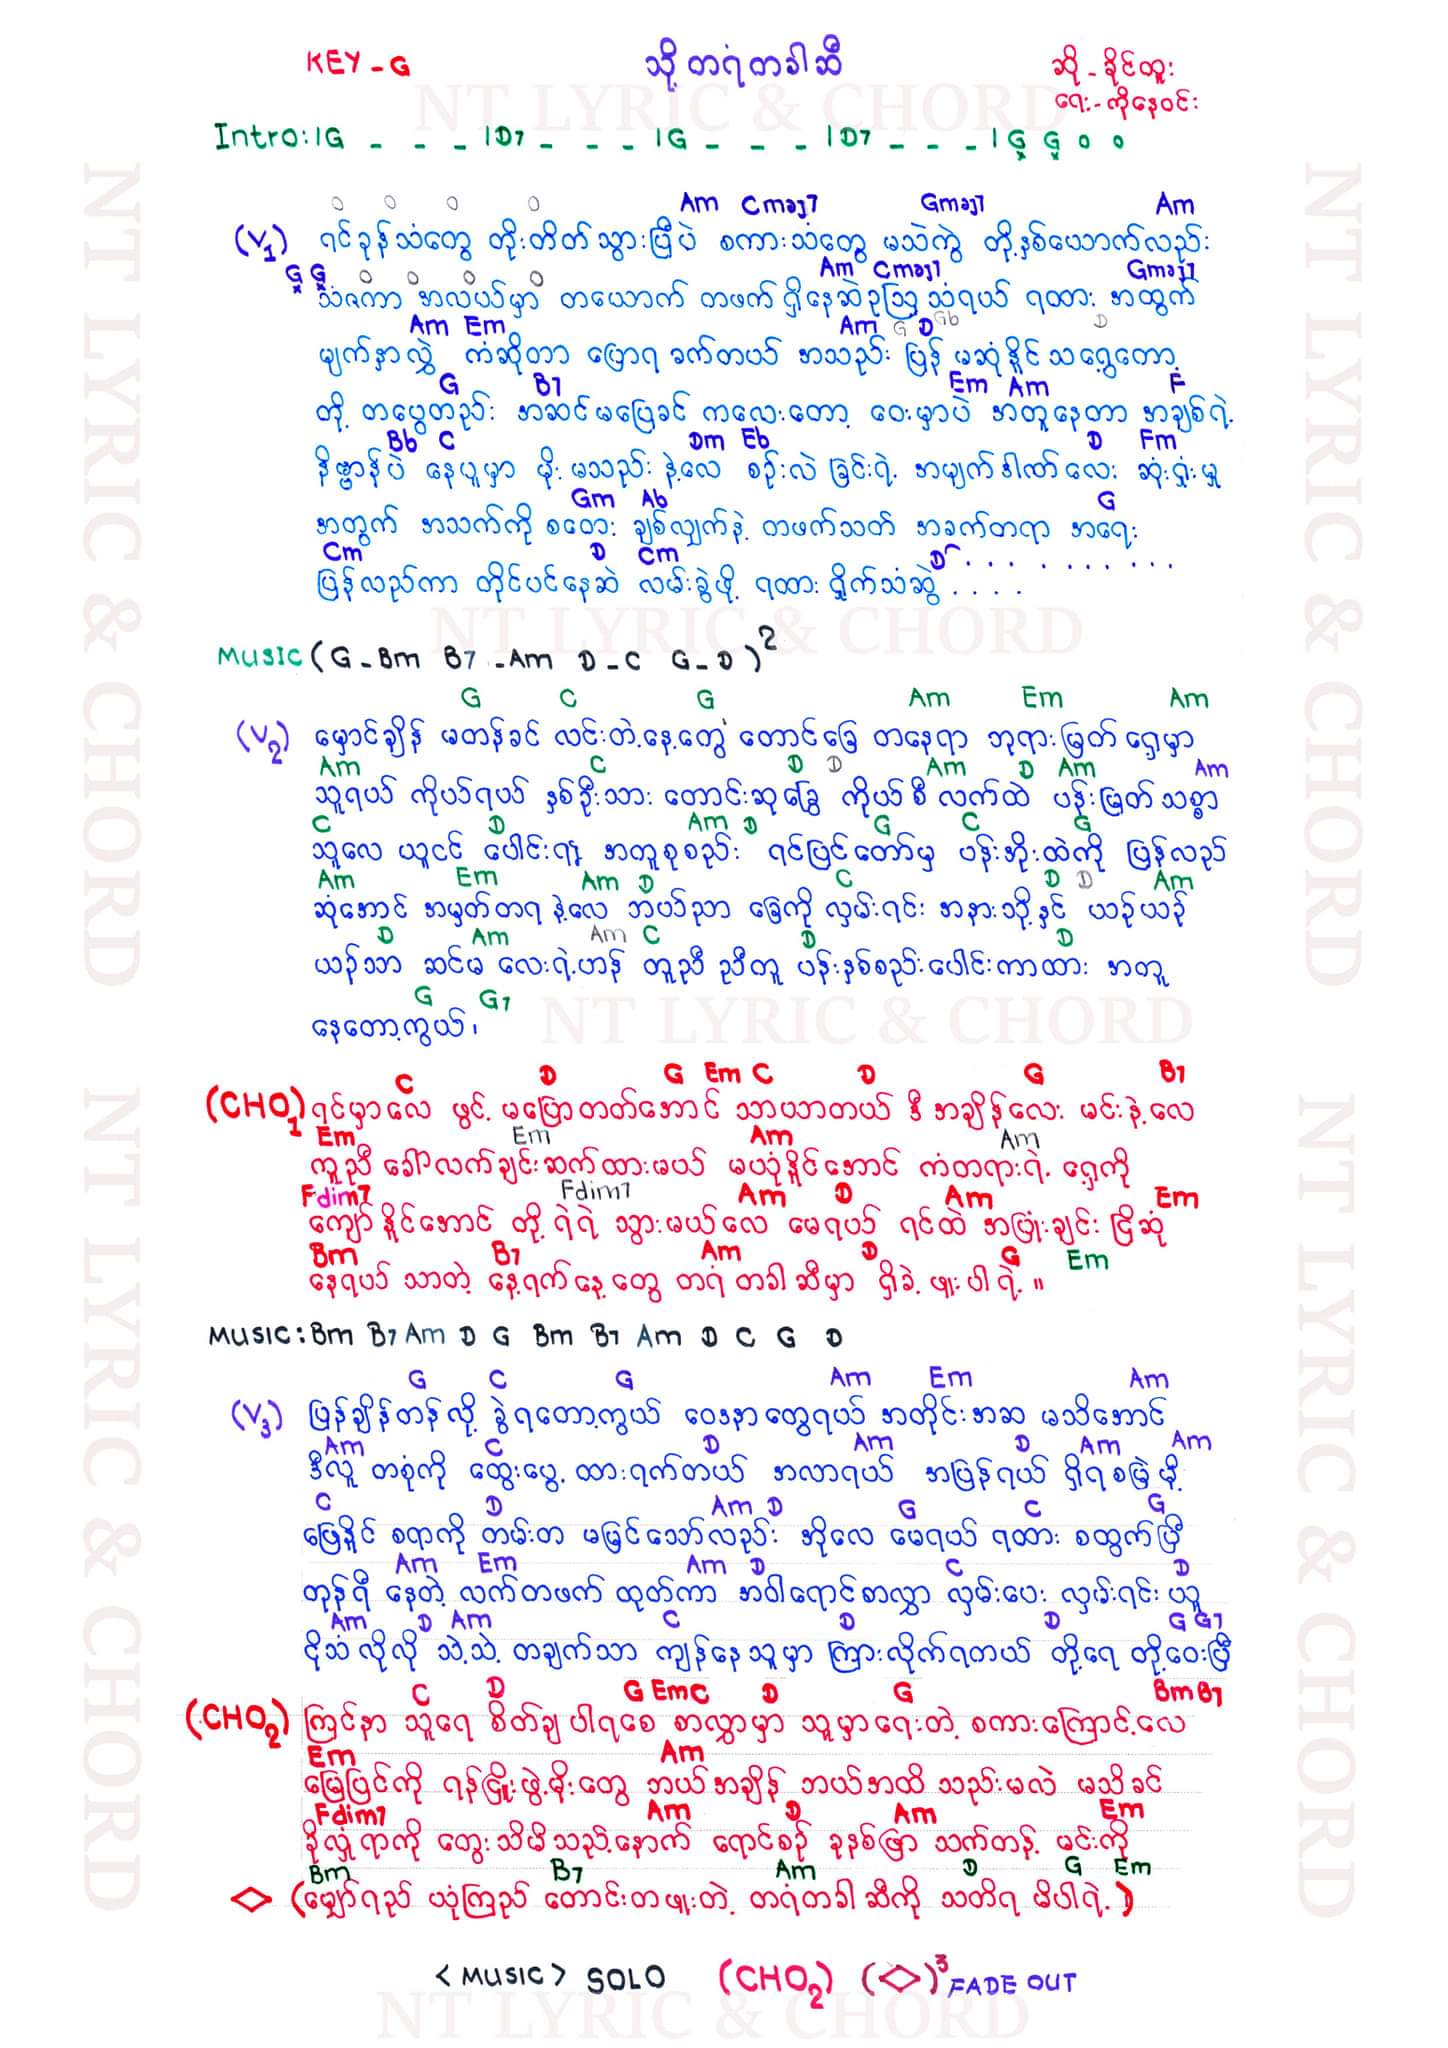 KEY - G
သို့ တရံတခါဆီ
ဆို - ခိုင်ထူး
ရေး - ကိုနေဝင်း
NT LYRIC & CHORD
Intro: |G - - - |D7 - - - |G - - - |D7 - - - |G G o o
o o o o Am Cmaj7 Gmaj7 Am
(V1) ရင်ခုန်သံတွေ တိုးတိတ်သွားပြီပဲ စကားသံတွေ မသဲကွဲ တို့နှစ်ယောက်လည်း
G G o o o o Am Cmaj7 Gmaj7
သံဇကာ အလယ်မှာ တယောက် တဖက် ရှိနေဆဲ ဥဩ သံရယ် ရထား အထွက်
Am Em Am G D Gb D
မျက်နှာလွှဲ ကံဆိုတာ ပြောရ ခက်တယ် အသည်း ပြန် မဆုံနိုင် သရွေ့တော့
G B7 Em Am F
တို့ တပွေတည်း အဆင်မပြေခင် ကလေးတော့ ဝေးမှာပဲ အတူနေတာ အချစ်ရဲ့
Bb C Dm Eb D Fm
နိဗ္ဗာန်ပဲ နေပူမှာ မိုး မသည်း နဲ့လေ စဉ်းလဲ ခြင်းရဲ့ အမျက်ဒါဏ်လေး ဆုံးရှုံးမှု
Gm Ab G
အတွက် အသက်ကို စတေး ချစ်လျှက်နဲ့ တဖက်သတ် အခက်တရာ အရေး
Cm D Cm D . . . . . . . . . .
ပြန်လည်ကာ တိုင်ပင်နေဆဲ လမ်းခွဲဖို့ ရထား ရှိုက်သံဆွဲ . . . .
NT LYRIC & CHORD
MUSIC (G - Bm B7 - Am D - C G - D)2
G C G Am Em Am
(V2) မှောင်ချိန် မတန်ခင် လင်းတဲ့နေ့တွေ တောင်ခြေ တနေရာ ဘုရားမြတ် ရှေ့မှာ
Am C D D Am D Am Am
သူရယ် ကိုယ်ရယ် နှစ်ဦးသား တောင်းဆုခြွေ ကိုယ်စီ လက်ထဲ ပန်းမြတ်သစ္စာ
C D Am D G C G
သူလေ ယူငင် ပေါင်းရုံး အတူစုစည်း ရင်ပြင်တော်မှ ပန်းအိုးထဲကို ပြန်လည်
Am Em Am D C D D Am
ဆုံအောင် အမှတ်တရ နဲ့လေ ဘယ်ညာ ခြေကို လှမ်းရင်း အနားသို့နှင် ယဉ်ယဉ်
D Am Am C D D
ယဉ်သာ ဆင်မ လေးရဲ့ဟန် တူညီ ညီတူ ပန်းနှစ်စည်းပေါင်းကာထား အတူ
G G7
နေတော့ကွယ်၊
NT LYRIC & CHORD
C D G Em C D G B7
(CHO1) ရင်မှာလေ ဖွင့် မပြောတတ်အောင် သာယာတယ် ဒီ အချိန်လေး မင်းနဲ့လေ
Em Em Am Am
ကူညီ ခေါ်လက်ချင်းဆက်ထားမယ် မယုံနိုင်အောင် ကံတရားရဲ့ ရှေ့ကို
Fdim7 Fdim7 Am D Am Em
ကျော်နိုင်အောင် တို့ ရဲရဲ သွားမယ်လေ မေရယ် ရင်ထဲ အပြုံးချင်း ငြိဆုံ
Bm B7 Am D G Em
နေရယ် သာတဲ့ နေ့ရက်နေ့တွေ တရံတခါဆီမှာ ရှိခဲ့ဖူးပါရဲ့။
MUSIC: Bm B7 Am D G Bm B7 Am D C G D
G C G Am Em Am
(V3) ပြန်ချိန်တန်လို့ ခွဲရတော့ကွယ် ဝေဒနာတွေရယ် အတိုင်းအဆ မသိအောင်
Am C D Am D Am Am
ဒီလူ တစုံကို ထွေးပွေ့ ထားရက်တယ် အလာရယ် အပြန်ရယ် ရှိရစမြဲမို့
C D Am D G C G
ဖြေနိုင် စရာကို တမ်းတ မမြင်သော်လည်း အိုလေ မေရယ် ရထား စထွက်ပြီ
Am Em Am D C D
တုန်ရီ နေတဲ့ လက်တဖက် ထုတ်ကာ အဝါရောင်စာလွှာ လှမ်းပေး လှမ်းရင်း ယူ
Am D Am C D D G G7
ငိုသံလိုလို သဲ့သဲ့ တချက်သာ ကျန်နေသူမှာ ကြားလိုက်ရတယ် တို့ရေ တို့ဝေးပြီ
C D G Em C D G Bm B7
(CHO2) ကြင်နာ သူရေ စိတ်ချ ပါရစေ စာလွှာမှာ သူမှာရေးတဲ့ စကားကြောင့်လေ
Em Am
မြေပြင်ကို ရန်ငြိုးဖွဲ့မိုးတွေ ဘယ်အချိန် ဘယ်အထိ သည်းမလဲ မသိခင်
Fdim7 Am D Am Em
ခိုလှုံရာကို တွေးသိမိသည့်နောက် ရောင်စဉ် ခုနှစ်ဖြာ သက်တန့် မင်းကို
Bm B7 Am D G Em
◇ (မျှော်ရည် ယုံကြည် တောင်းတဖူးတဲ့ တရံတခါဆီကို သတိရ မိပါရဲ့)
<MUSIC> SOLO (CHO2) (◇)3 FADE OUT
NT LYRIC & CHORD
NT LYRIC & CHORD
NT LYRIC & CHORD
NT LYRIC & CHORD
NT LYRIC & CHORD